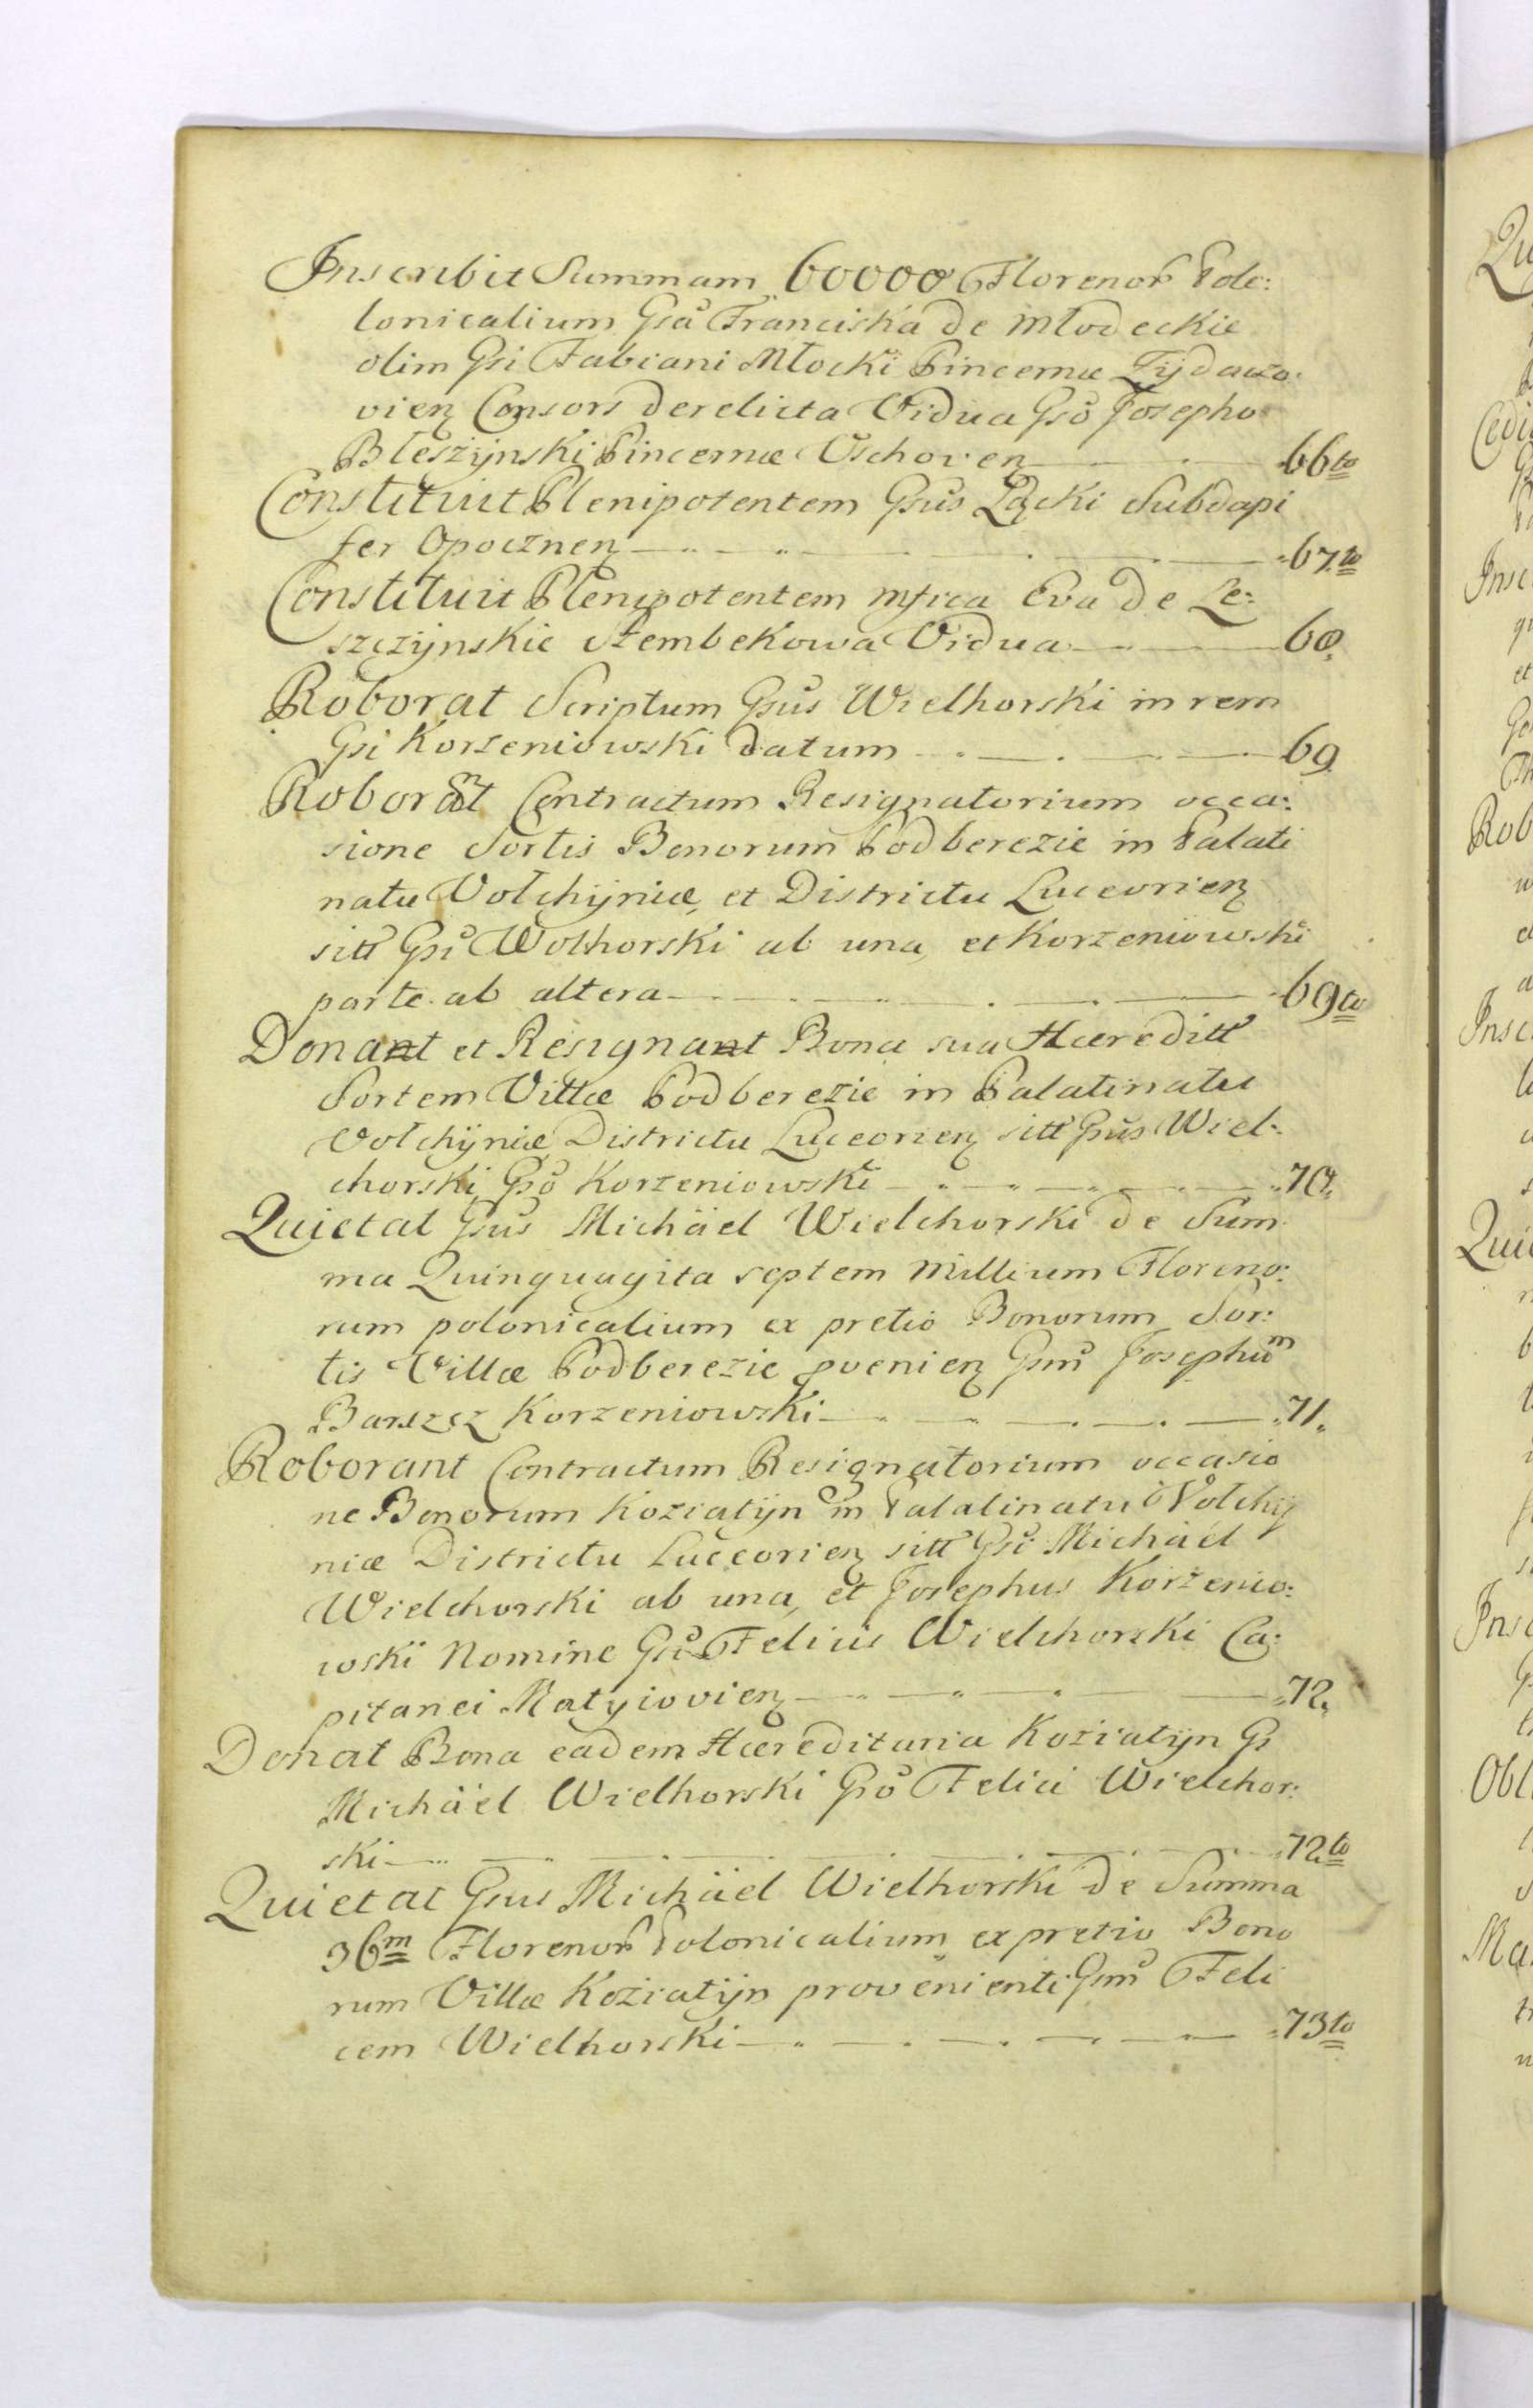 Inscribit Summam 60000 Florenor Polo:
lonicalium Gsa Franciska de Młodeckie
olim Gsi Fabiani Młocki Pincernæ Zydaczo:
vien Consors derelicta Vidua Gso Josepho
Bleszÿnski Pincernæ Vschovien 66to
Constituit Plenipotentem Gsus Łącki Subdapi
fer Opocznen 67.to
Constituit Plenipotentem Mfica Eva de Le:
szczÿnskie Szembekowa Vidua 68.
Roborat Scriptum Gsus Wielhorski in rem
Gsi Korzeniowski datum 69
Roborant Contractum Resignatorium occa:
sione Sortis Bonorum Podberezie in Palati
natu Volchÿniæ, et Districtu Luceorien
sitt Gsi Wolhorski ab una, et Korzeniowski
parte ab altera 69to
Donant et Resignant Bona sua Hæreditt
Sortem Villæ Podberezie in Palatinatu
Volchÿniæ Districtu Luceorien sitt Gsus Wiel:
chorski Gso Korzeniowski 70.
Quietat Gsus Michäel Wielchorski de Sum
ma Quinquagita septem Millium Floreno:
rum polonicalium ex pretio Bonorum Sor:
tis Villæ Podberezie pvenien Gsm Josephum
Barszcz Korzeniowski 71.
Roborant Contractum Resignatorium occasio
ne Bonorum Koziatÿn in Palatinatu Volchÿ
niæ Districtu Luceorien sitt Gsi Michäel
Wielchorski ab una, et Josephus Korzenio:
wski Nomine Gsi Felicis Wielchorski Ca:
pitanei Matyiovien 72.
Donat Bona eadem Hæreditaria Koziatÿn Gs
Michäel Wielhorski Gso Felici Wielchor:
ski 72.to
Quietat Gsus Michäel Wielhorski de Summa
36m Florenor Polonicalium ex pretio Bono
rum Villæ Koziatÿn provenienti Gsm Feli
cem Wielhorski 73to